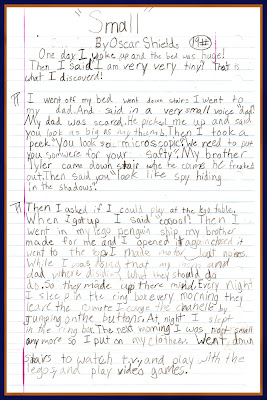 "Small"
By Oscar Shields
One day I woke up and the bed was huge!
Then I said I am very very tiny! That is
what I discoverd!
¶ I went off my bed went down stairs I went to
my dad. And said in a very small voice "dad".
My dad was scared. He picked me up and said
you look as big as my thumb. Then I took a
peek. "You look so microscopic." We need to put
you somwere for your safty". My brother
Tyler came down stair whe he came he freaked
out. Then said you "look like spy hiding
in the shadows".
¶ Then I asked if I could play at the lego table.
When I got up I said "cool"! Then I
went in my lego penguin ship my brother
made for me and I opened it it
went to the made motor noises.
While I was doing that my mom and
dad where disiding why they should do
do. So they made up there mind. Every night
I sleep in the ring box every morning they
leave the I change the chanele by
jumping on the buttons. At night I slept
in the ring box. The next morning I was not small
any more so I put on my clothes. Went down
stairs to watch t.v. and play with the
legos and play video games.